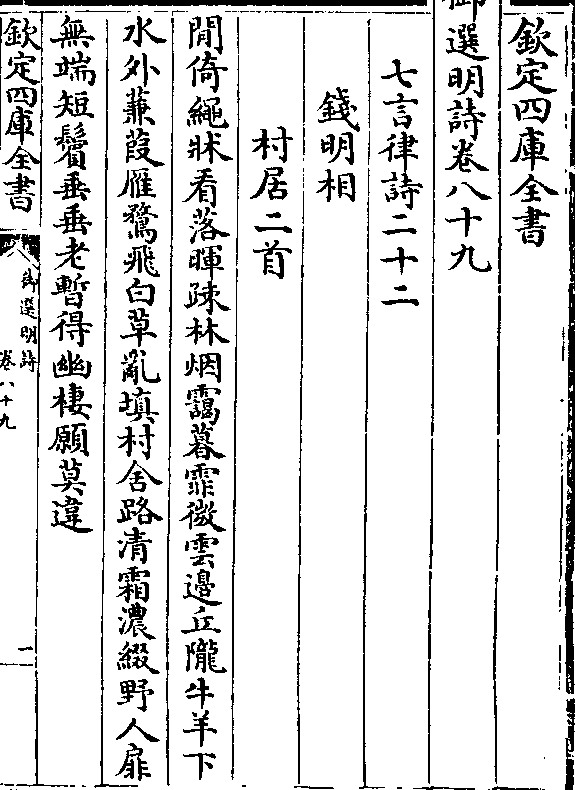 欽定四庫全書
御選明詩卷八十九
七言律詩二十二
錢明相
村居二首
閒倚繩牀看落暉疎林烟靄暮霏微雲邊丘隴牛羊下
水外蒹葭雁鶩飛白草亂填村舍路清霜濃綴野人扉
無端短鬢垂垂老暫得幽棲願莫違
欽定四庫全書
御選明詩
卷八十九
一